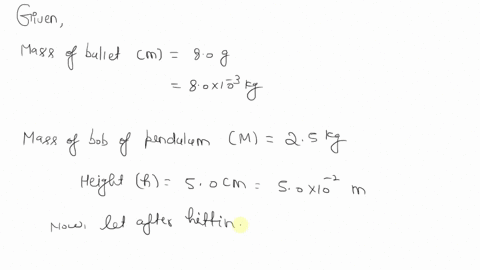 Given,
Mass of bullet (m) = 8.0 g
= 8.0×10⁻³ kg
Mass of bob of pendulum (M) = 2.5 kg
Height (h) = 5.0 cm = 5.0×10⁻² m
Now, let after hittin